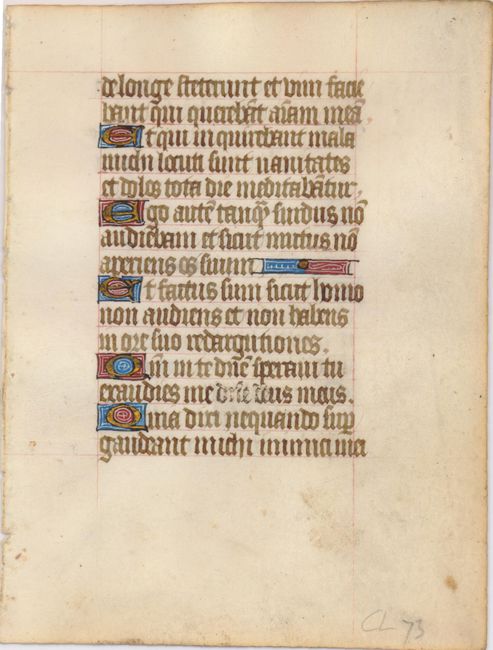 de longe steterunt et vim facie
bant qui querebāt aīam meā
Et qui inquirebant mala
michi locuti sunt uanitates
et dolos tota die meditabātur.
Ego autē tanq̄ surdus nō
audiebam et sicut mutus nō
aperiens os suum
Et factus sum sicut homo
non audiens et non habens
in ore suo redargutiones.
Qm̄ in te dn̄e speraui tu
exaudies me dn̄e deus meus.
Quia dixi nequando sup
gaudeant michi inimici mei
CL 73